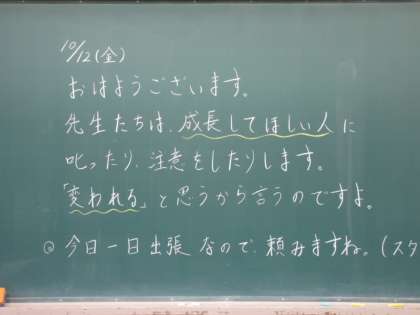 10/12(金)
おはようございます。
先生たちは、成長してほしい人に
叱ったり、注意をしたりします。
「変われる」と思うから言うのですよ。
◎今日一日出張なので、頼みますね。(スタ